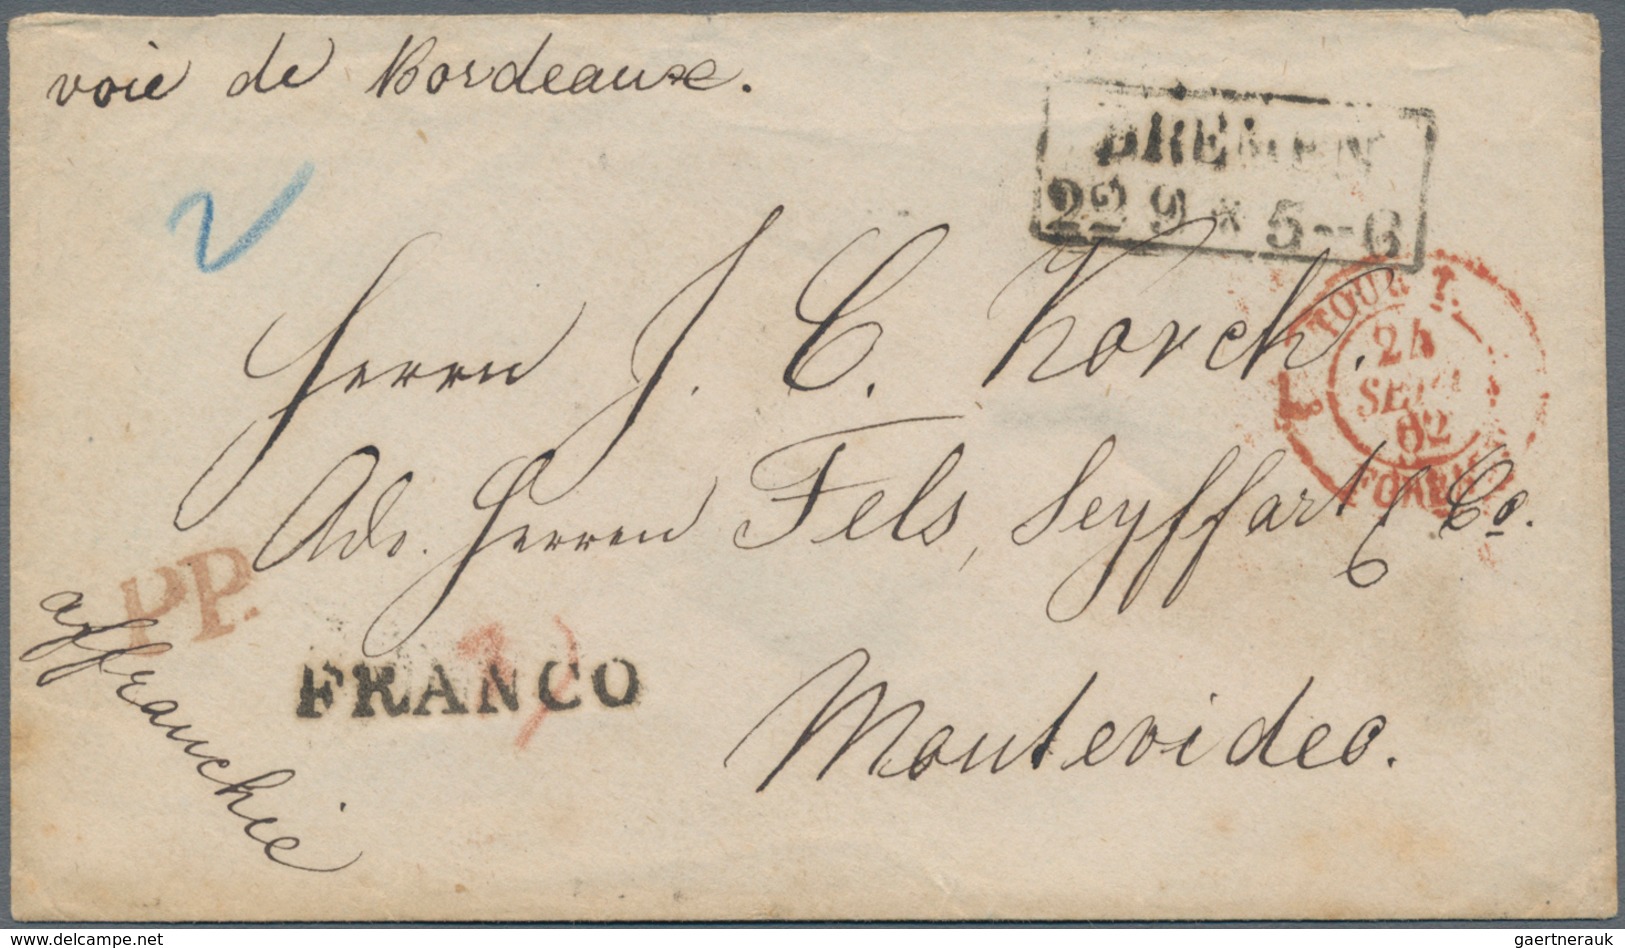 voie de Bordeaux.
BREMEN
22 9 * 5--6
2
Herrn J. C. Korck.
TOUR T.
24
SEPT
62
FORBACH
Adr. Herren Fels, Seyffart & Co.
PP.
affranchie
FRANCO
Montevideo.
delcampe.net
gaertnerauk